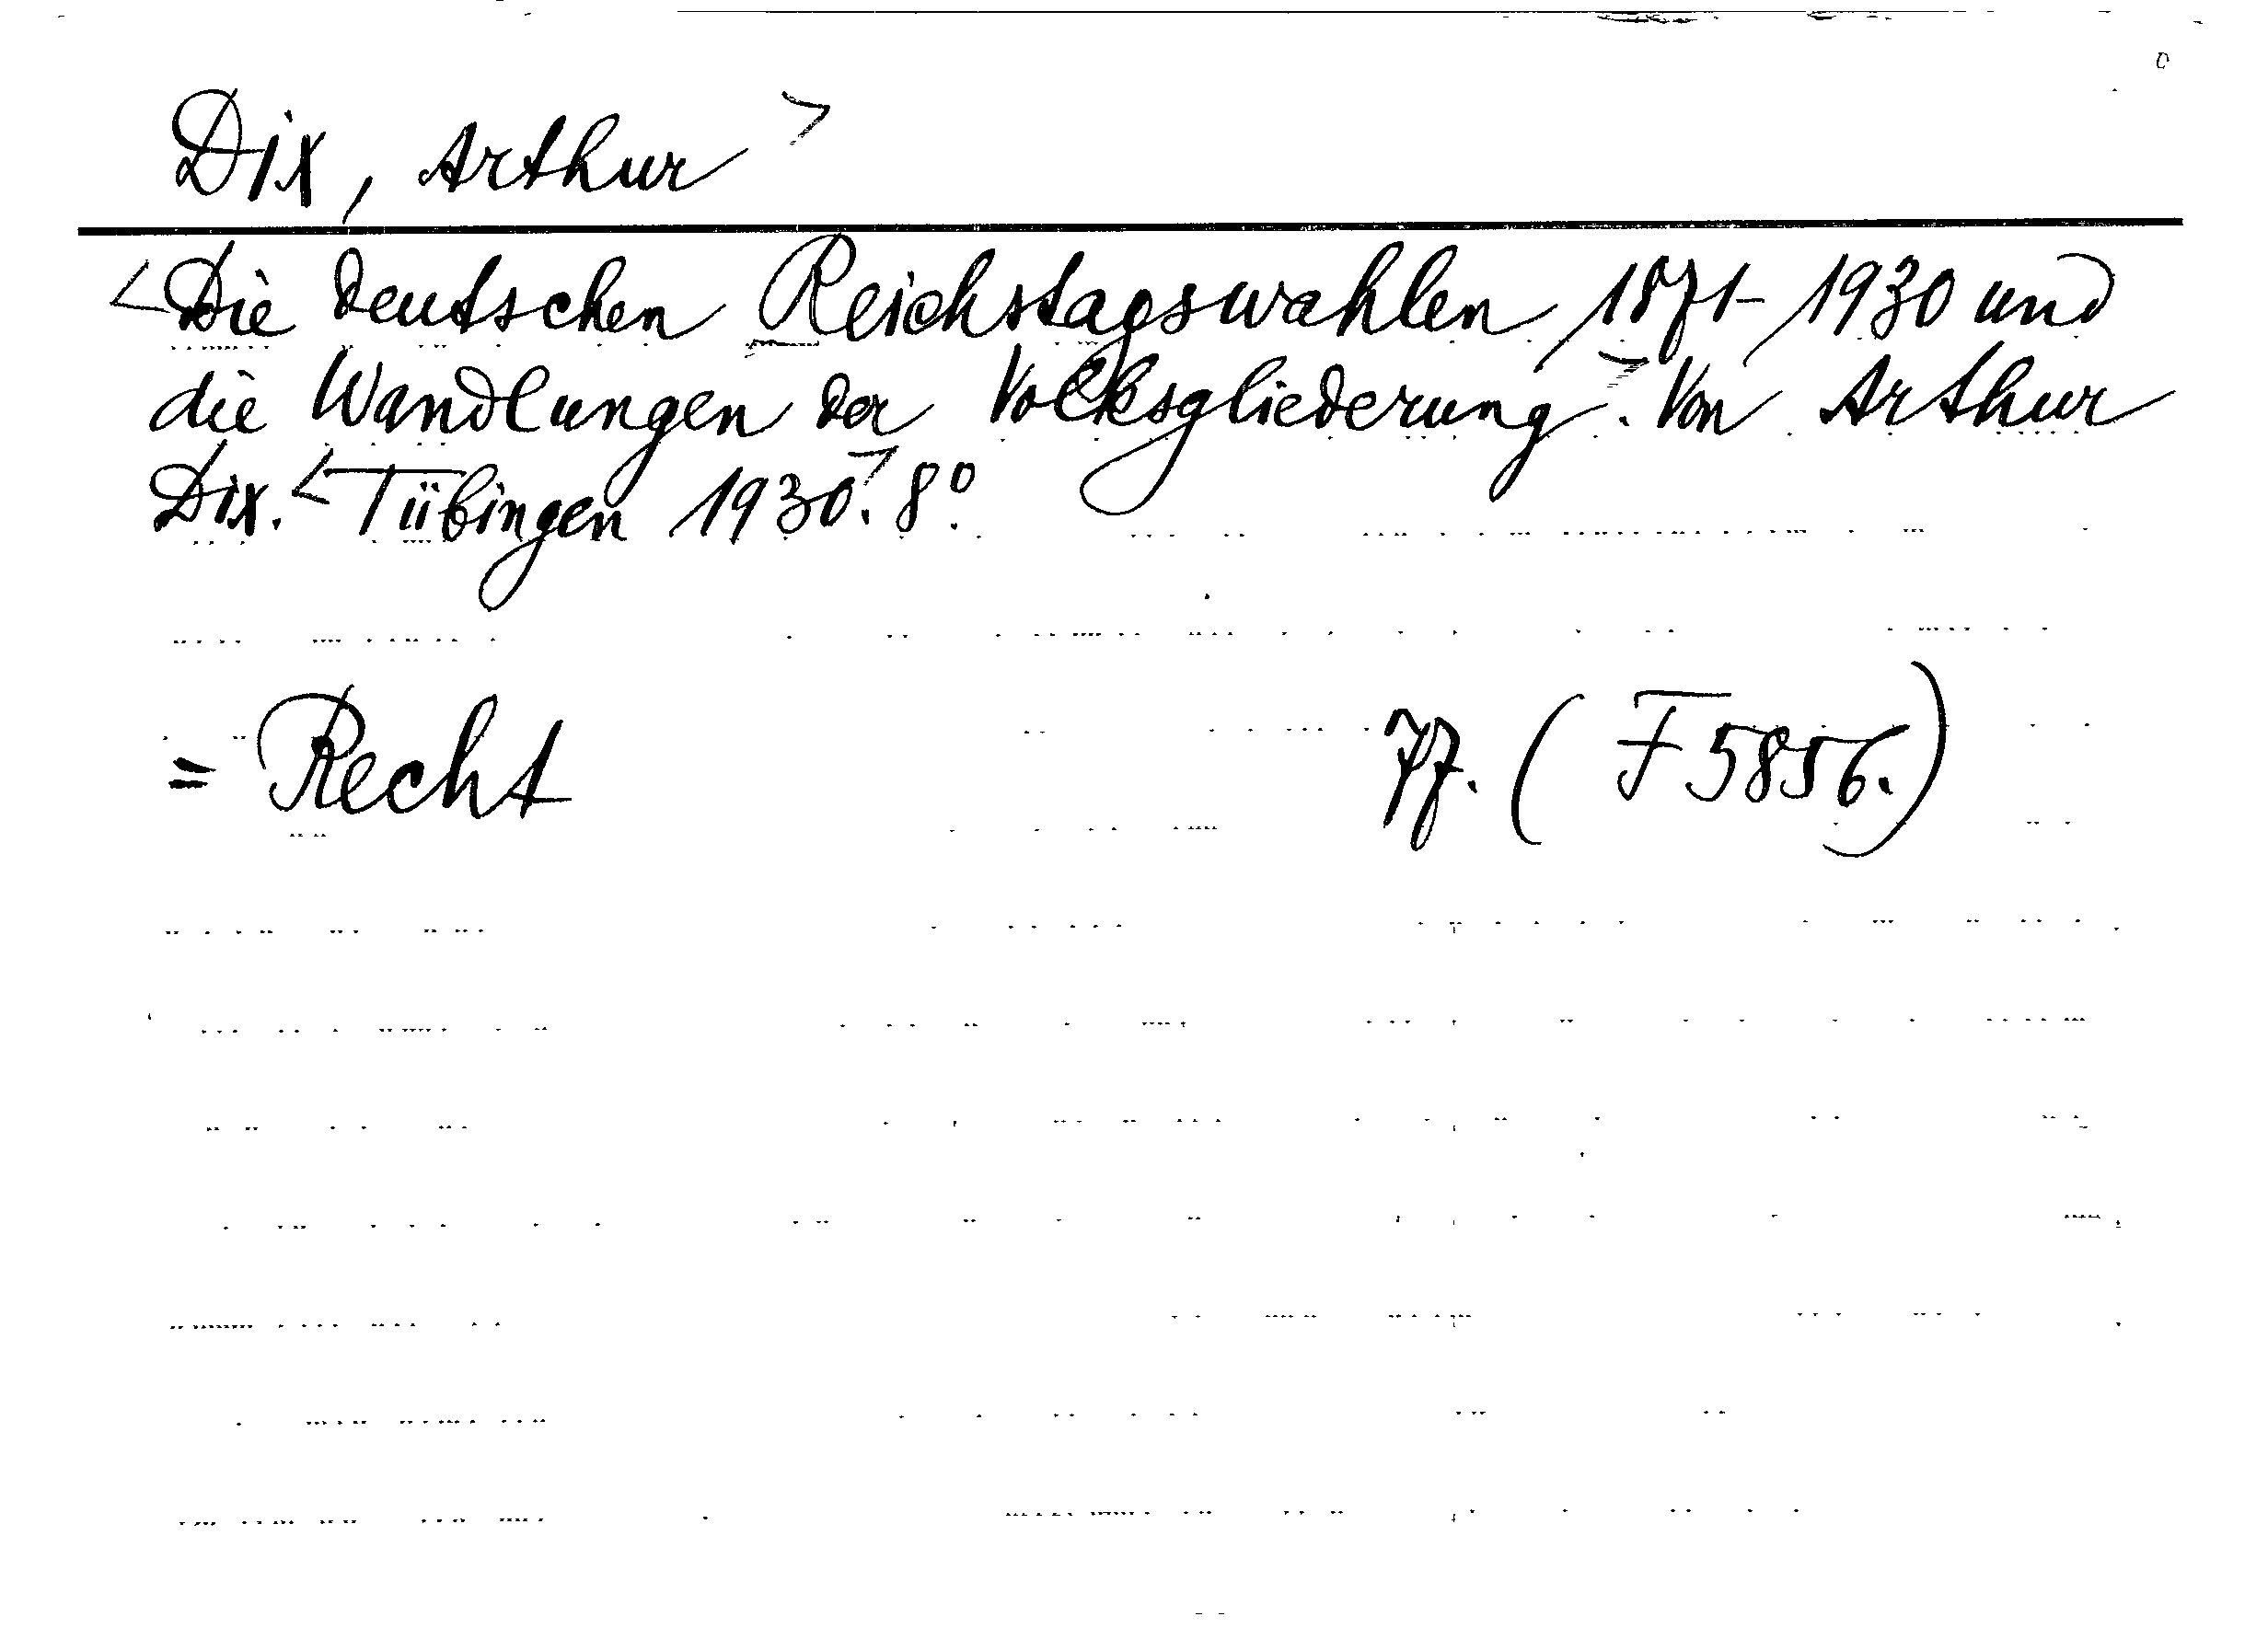 Dix, Arthur >
<Die deutschen Reichstagswahlen, 1871-1930 und
die Wandlungen der Volksgliederung>. Von Arthur
Dix. <Tübingen 1930>. 8º.
= Recht 77. (F 5856.)